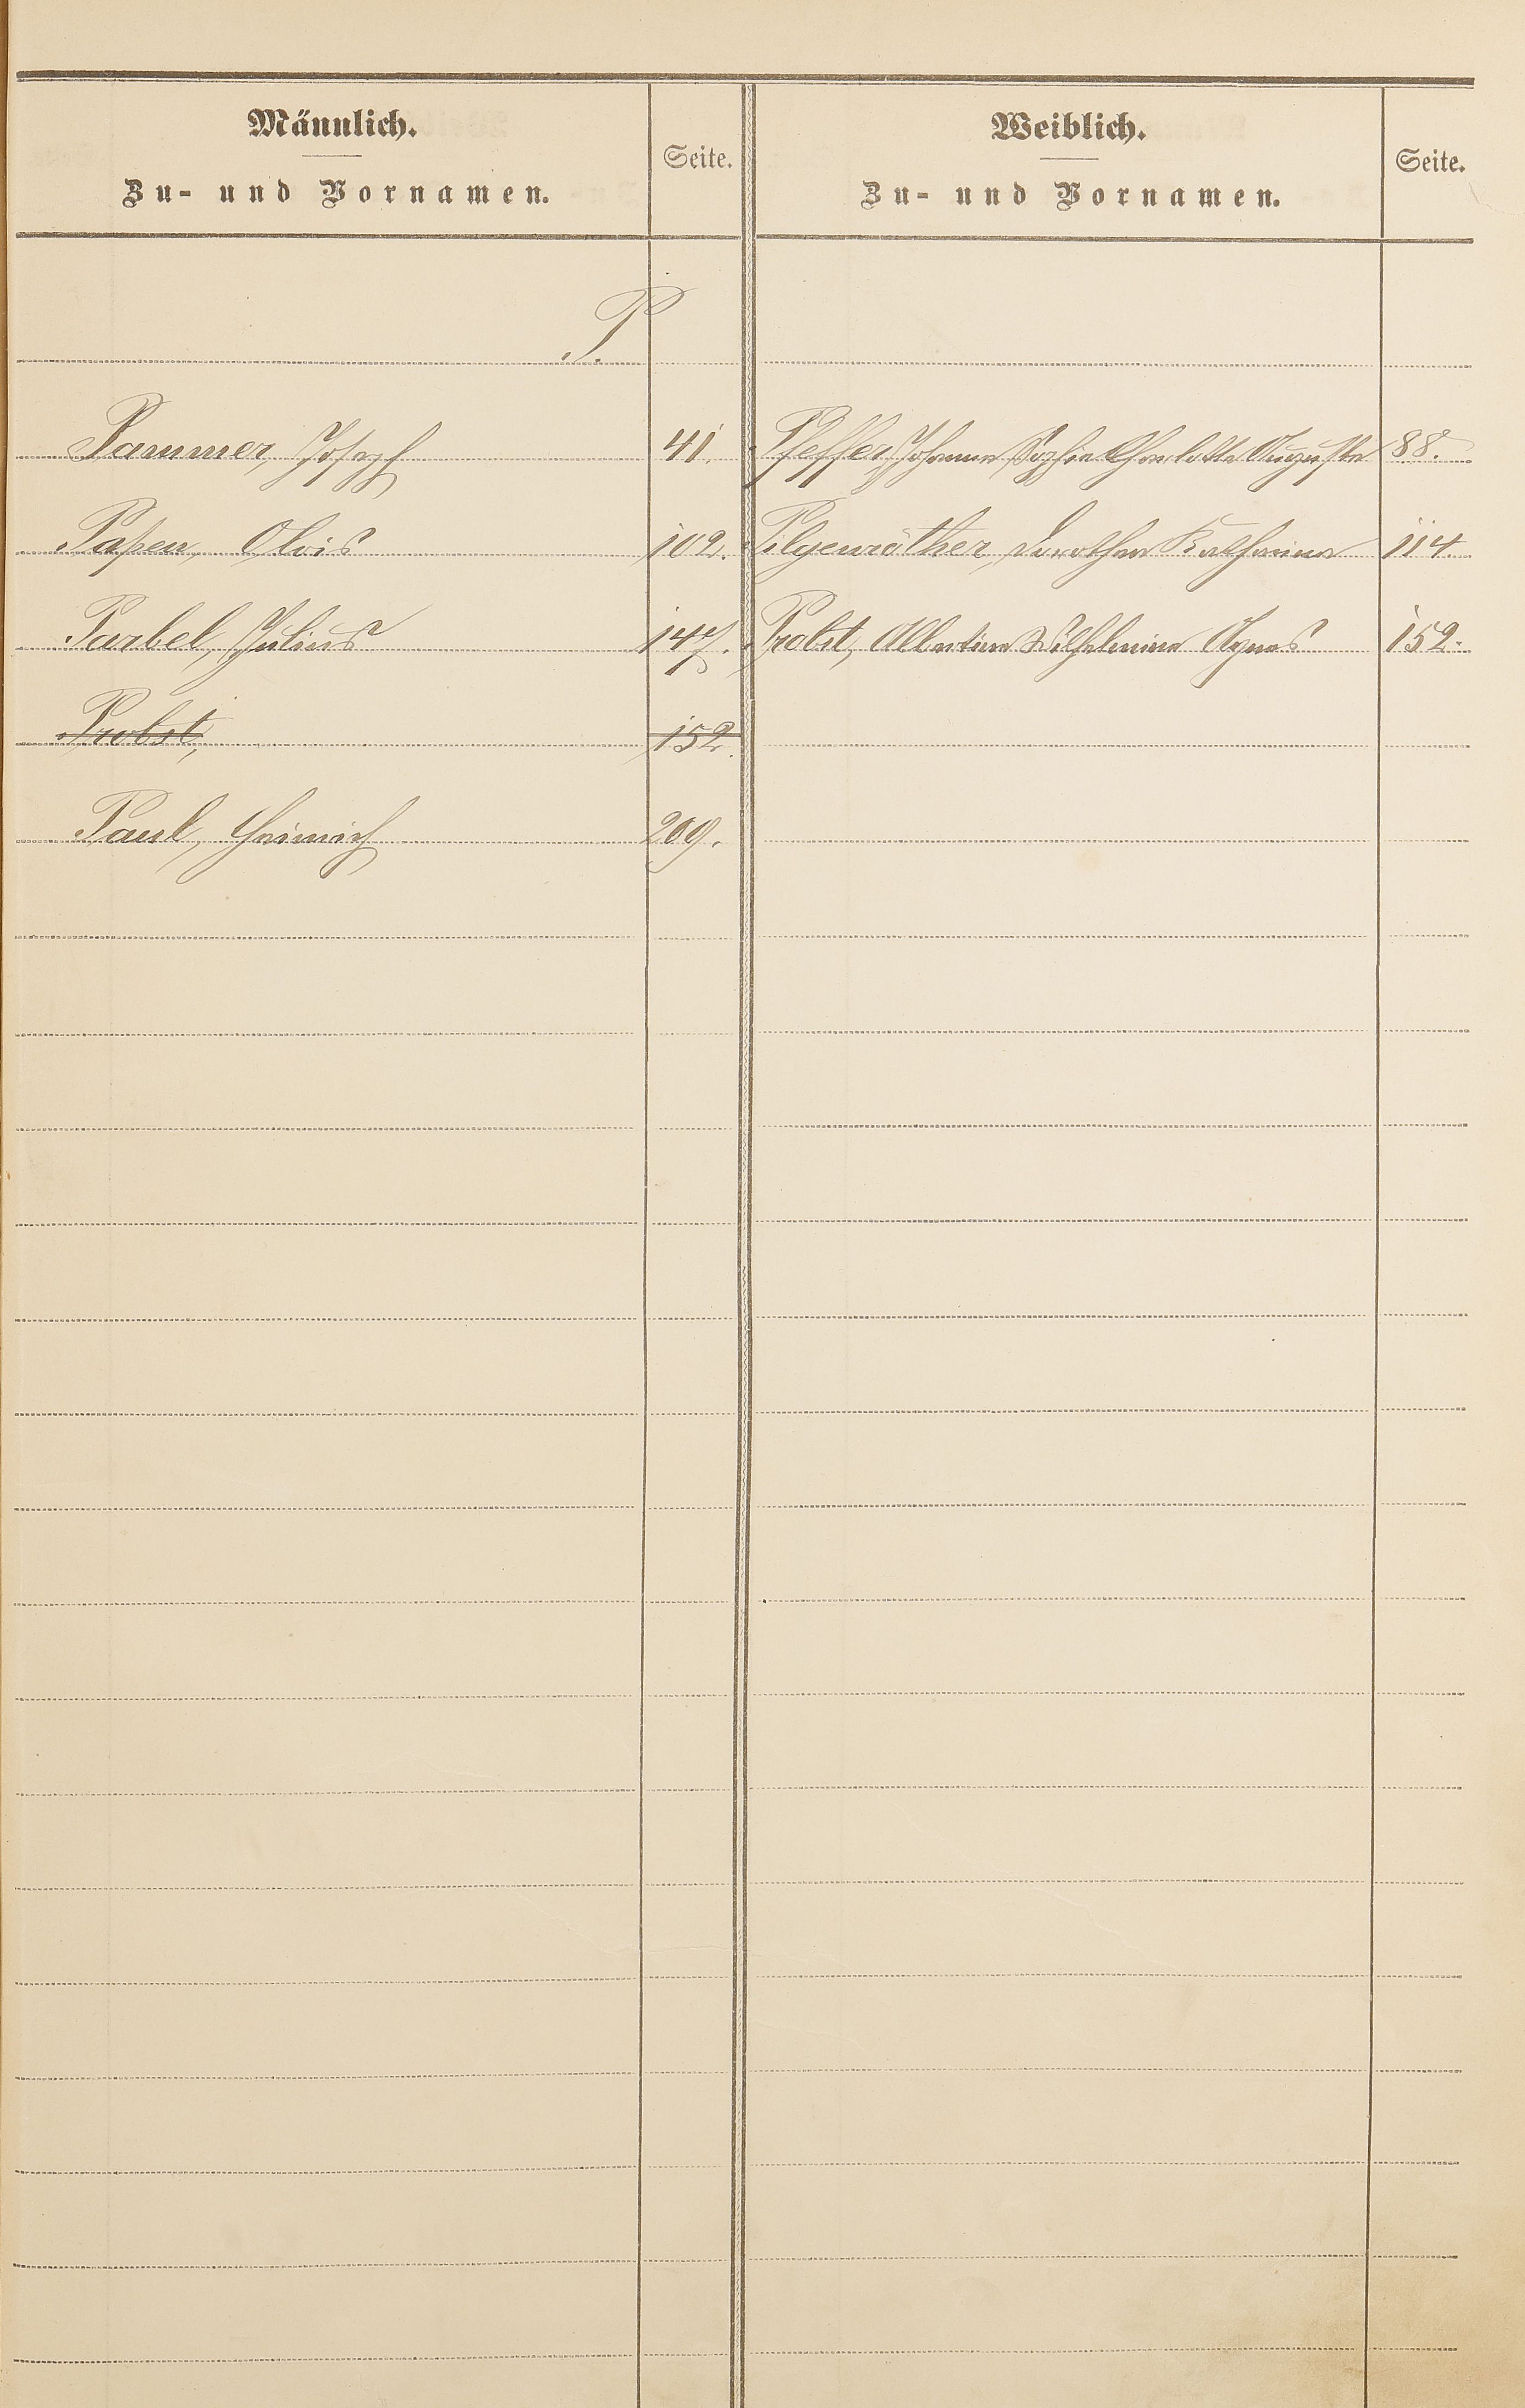 Männlich.
Zu- und Vornamen.
Seite.
Weiblich.
Zu- und Vornamen.
Seite.
P.
Pammer, Joseph 41. Pfeffer, Johanne Sophie Charlotte Auguste 88.
Papen, Alois 102. Pilgenröther, Dorothea Katharina 114.
Parbel, Julius 147. Probst, Albertine Wilhelmine Agnes 152.
Probst, 152.
Paul, Heinrich 209.